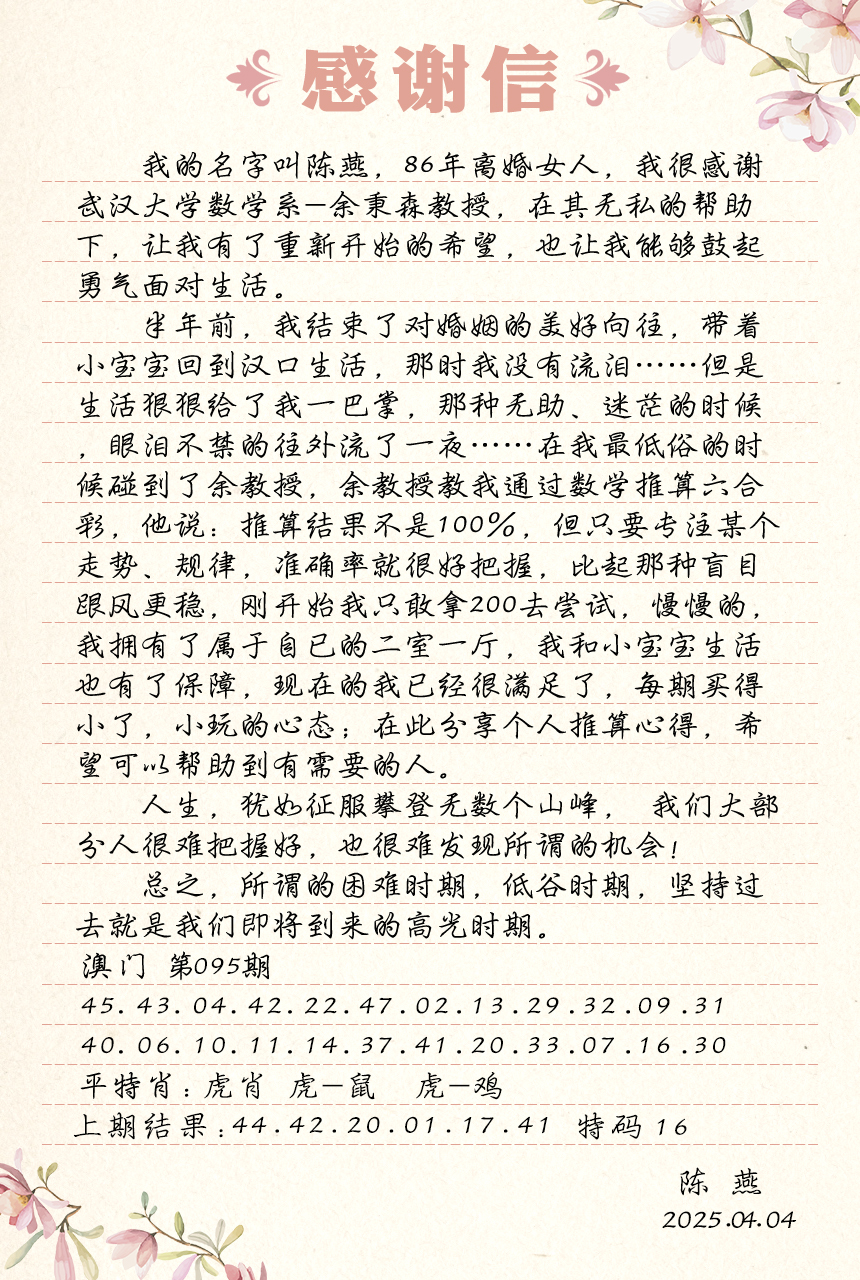 感谢信
我的名字叫陈燕，86年离婚女人，我很感谢
武汉大学数学系—余秉森教授，在其无私的帮助
下，让我有了重新开始的希望，也让我能够鼓起
勇气面对生活。
半年前，我结束了对婚姻的美好向往，带着
小宝宝回到汉口生活，那时我没有流泪……但是
生活狠狠给了我一巴掌，那种无助、迷茫的时候
，眼泪不禁的往外流了一夜……在我最低俗的时
候碰到了余教授，余教授教我通过数学推算六合
彩，他说：推算结果不是100%，但只要专注某个
走势、规律，准确率就很好把握，比起那种盲目
跟风更稳，刚开始我只敢拿200去尝试，慢慢的，
我拥有了属于自已的二室一厅，我和小宝宝生活
也有了保障，现在的我已经很满足了，每期买得
小了，小玩的心态；在此分享个人推算心得，希
望可以帮助到有需要的人。
人生，犹如征服攀登无数个山峰， 我们大部
分人很难把握好，也很难发现所谓的机会！
总之，所谓的困难时期，低谷时期，坚持过
去就是我们即将到来的高光时期。
澳门 第095期
45.43.04.42.22.47.02.13.29.32.09.31
40.06.10.11.14.37.41.20.33.07.16.30
平特肖：虎肖 虎—鼠 虎—鸡
上期结果：44.42.20.01.17.41 特码 16
陈 燕
2025.04.04